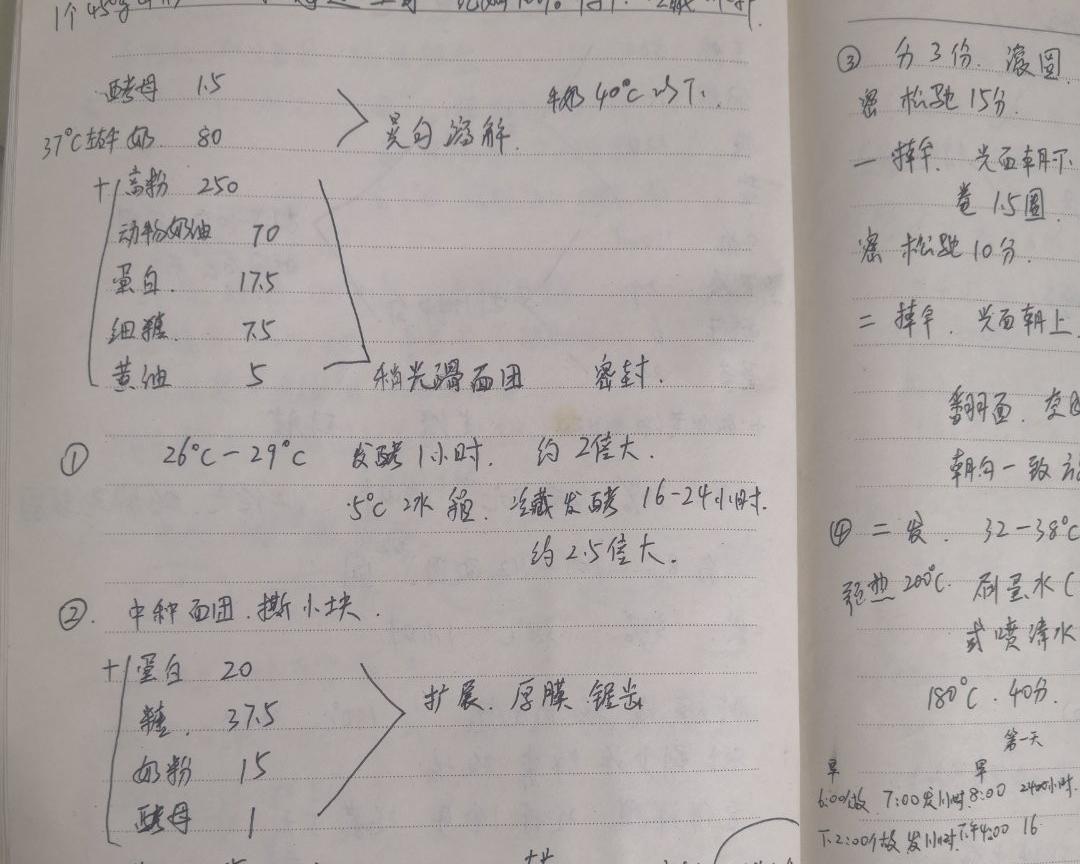 1个450g
酵母 1.5
牛奶40℃以下.
37℃ 牛奶 80
晃匀溶解.
+ 高粉 250
动物奶油 70
蛋白. 17.5
细糖. 7.5
黄油 5
稍光滑面团 密封.
① 26℃-29℃ 发酵1小时. 约2倍大.
5℃冰箱. 冷藏发酵 16-24小时.
约2.5倍大.
②. 中种面团.撕小块.
+ 蛋白 20
糖. 37.5
奶粉 15
酵母 1
扩展. 厚膜.锯齿
③ 分3份. 滚圆
密 松弛15分.
一擀. 光面朝下.
卷1.5圈.
密 松弛10分.
二擀. 光面朝上
翻面.
朝向一致
④ 二发. 32-38℃
预热200℃. 刷蛋水(
或喷清水
180℃.40分.
第一天
早 早
6:00做 7:00发1小时.8:00 24小时.
下.2:00做 发1小时.下午4:00 16